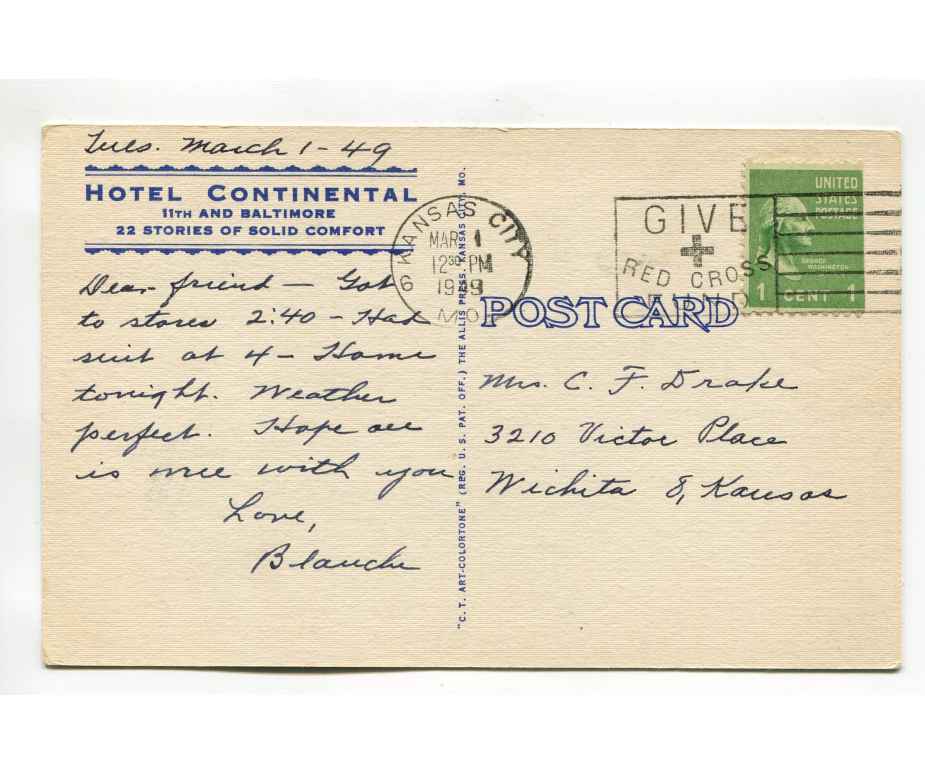 Tues. March 1-49
HOTEL CONTINENTAL
11TH AND BALTIMORE
22 STORIES OF SOLID COMFORT
Dear friend — Got
to stores 2:40 — Had
suit at 4 — Home
tonight. Weather
perfect. Hope all
is nice with you
Love,
Blanche
"C. T. ART-COLORTONE" (REG. U. S. PAT. OFF.) THE ALLIS PRESS, KANSAS CITY, MO.
KANSAS CITY
MAR 1
12 30 PM
1949
MO.
6
GIVE
RED CROSS
FUND
UNITED
STATES
POSTAGE
GEORGE
WASHINGTON
1 CENT 1
POST CARD
Mrs. C. F. Drake
3210 Victor Place
Wichita 8, Kansas